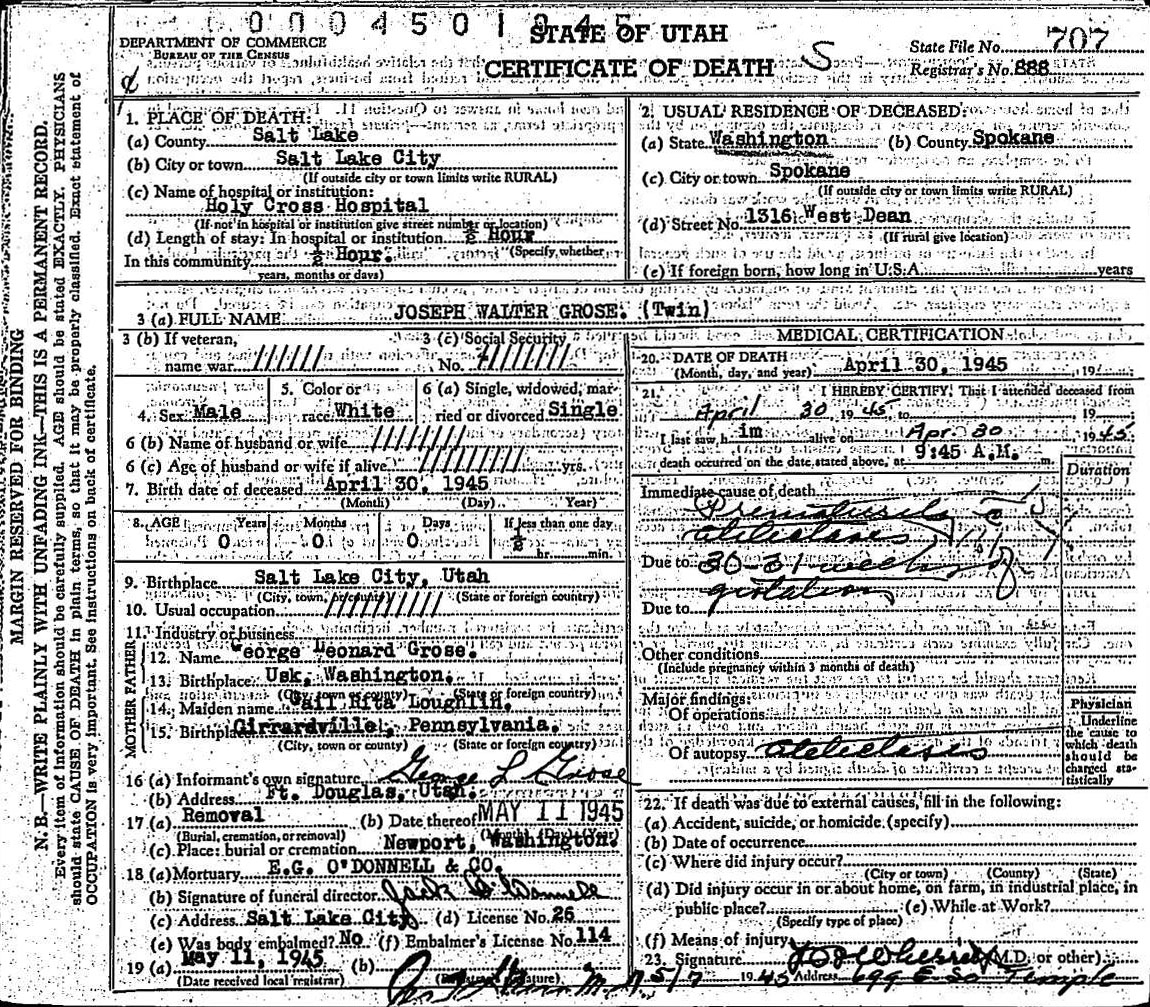 0 0 0 4 5 0 1 9 4 5
STATE OF UTAH
DEPARTMENT OF COMMERCE
BUREAU OF THE CENSUS
CERTIFICATE OF DEATH S
State File No. 707
Registrar's No. 888
MARGIN RESERVED FOR BINDING
N. B.—WRITE PLAINLY WITH UNFADING INK—THIS IS A PERMANENT RECORD.
Every item of information should be carefully supplied. AGE should be stated EXACTLY. PHYSICIANS
should state CAUSE OF DEATH in plain terms, so that it may be properly classified. Exact statement of
OCCUPATION is very important. See instructions on back of certificate.
1. PLACE OF DEATH:
(a) County Salt Lake
(b) City or town Salt Lake City
(If outside city or town limits write RURAL)
(c) Name of hospital or institution:
Holy Cross Hospital
(If not in hospital or institution give street number or location)
(d) Length of stay: In hospital or institution ½ Hour
(Specify whether
In this community ½ Hour.
years, months or days)
2. USUAL RESIDENCE OF DECEASED:
(a) State Washington (b) County Spokane
(c) City or town Spokane
(If outside city or town limits write RURAL)
(d) Street No. 1316 West Dean
(If rural give location)
(e) If foreign born, how long in U.S.A. years
3 (a) FULL NAME JOSEPH WALTER GROSE. (Twin)
3 (b) If veteran,
name war
3 (c) Social Security
No.
4. Sex Male
5. Color or
race White
6 (a) Single, widowed, mar-
ried or divorced Single
6 (b) Name of husband or wife
6 (c) Age of husband or wife if alive yrs.
7. Birth date of deceased April 30, 1945
(Month) (Day) Year)
8. AGE Years Months Days If less than one day
0 0 0 ½ hr. min.
9. Birthplace Salt Lake City, Utah
(City, town, or county) (State or foreign country)
10. Usual occupation
11. Industry or business
FATHER
12. Name George Leonard Grose.
13. Birthplace Usk, Washington.
(City, town or county) (State or foreign country)
MOTHER
14. Maiden name Gail Rita Loughlin.
15. Birthplace Girrardville, Pennsylvania.
(City, town or county) (State or foreign country)
16 (a) Informant's own signature George L Grose
(b) Address Ft. Douglas, Utah.
17 (a) Removal (b) Date thereof MAY 11 1945
(Burial, cremation, or removal) (Month) (Day) (Year)
(c) Place: burial or cremation Newport, Washington.
18 (a) Mortuary E.G. O'DONNELL & CO.
(b) Signature of funeral director Jack O'Donnell
(c) Address Salt Lake City (d) License No. 26
(e) Was body embalmed? No (f) Embalmer's License No. 114
19 (a) May 11, 1945 (b)
(Date received local registrar)
MEDICAL CERTIFICATION
20. DATE OF DEATH
(Month, day, and year) April 30, 1945
21. I HEREBY CERTIFY, That I attended deceased from
April 30 1945 to 19
I last saw him alive on Apr. 30 1945
death occurred on the date stated above, at 9:45 A.M. m.
Duration
Immediate cause of death
Prematurely
atelectases
Due to 30-31 weeks of
gestation
Due to
Other conditions
(Include pregnancy within 3 months of death)
Major findings:
Of operations
Of autopsy atelectases
Physician
Underline
the cause to
which death
should be
charged sta-
tistically
22. If death was due to external causes, fill in the following:
(a) Accident, suicide, or homicide (specify)
(b) Date of occurrence
(c) Where did injury occur?
(City or town) (County) (State)
(d) Did injury occur in or about home, on farm, in industrial place, in
public place? (e) While at Work?
(Specify type of place)
(f) Means of injury
23. Signature (M.D. or other)
5/7 1945 Address 699 E So Temple